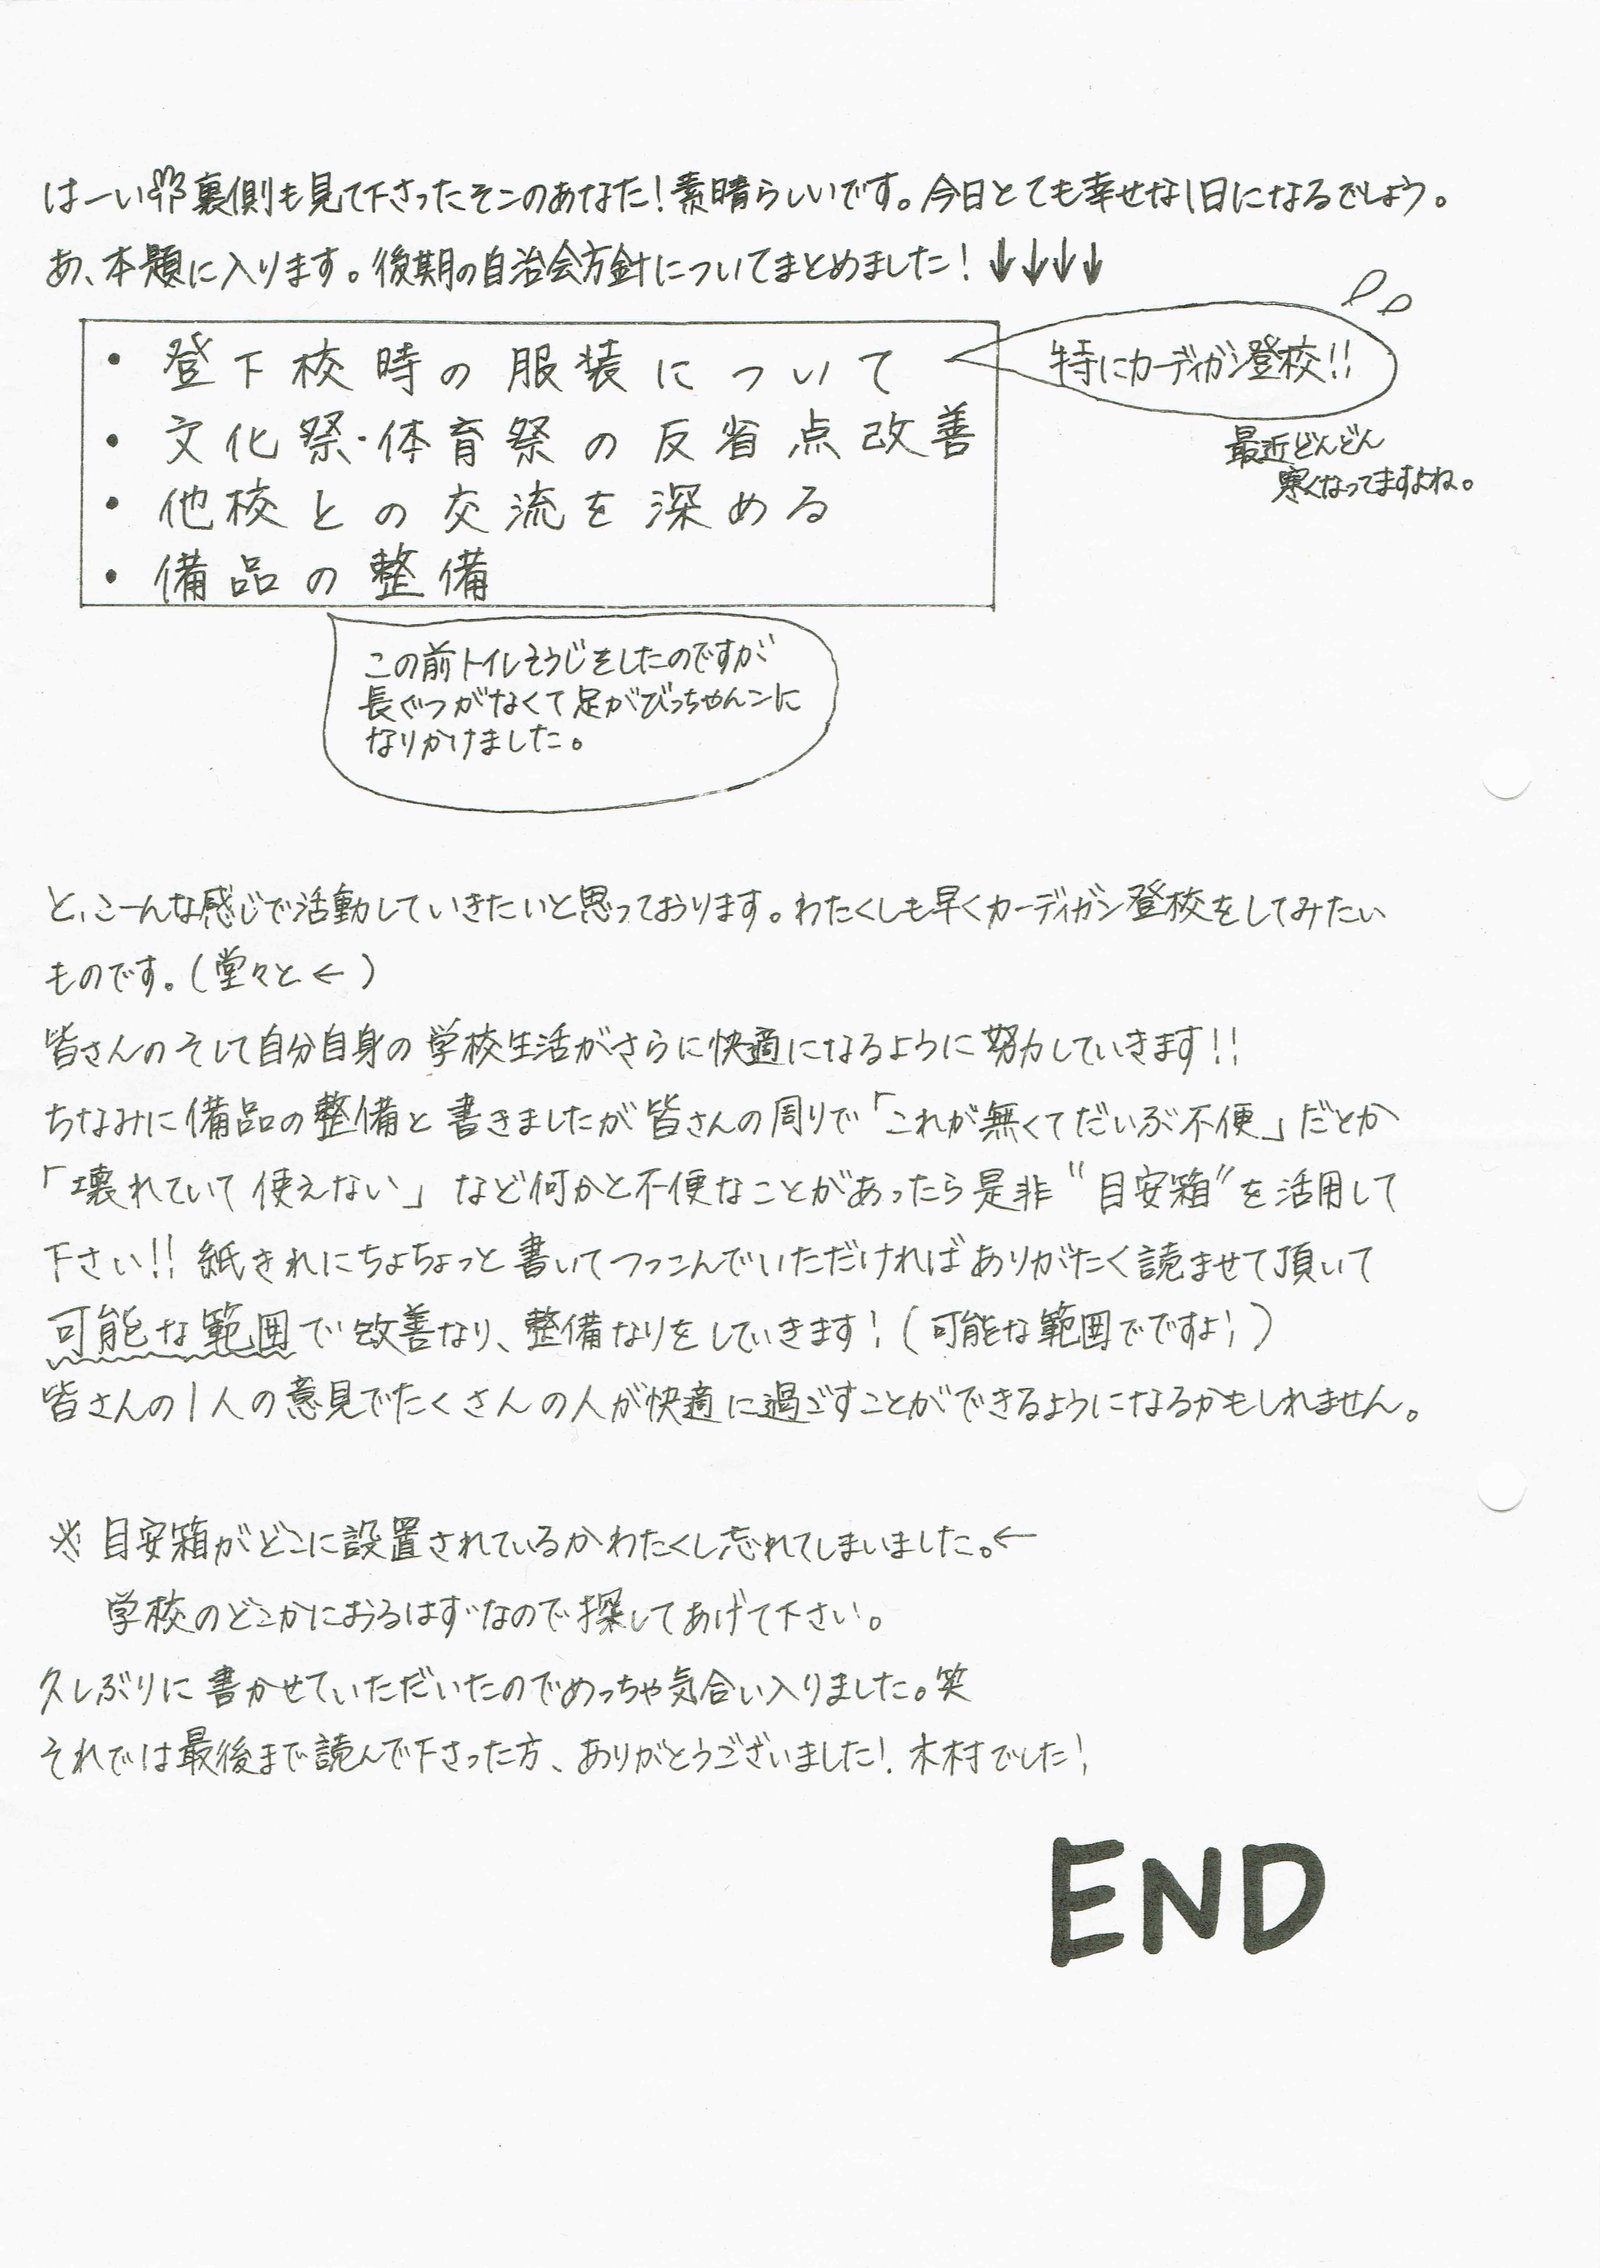 はーい裏側も見て下さったそこのあなた!素晴らしいです。今日とても幸せな1日になるでしょう。
あ、本題に入ります。後期の自治会方針についてまとめました!↓↓↓↓
・登下校時の服装について
特にカーディガン登校!!
・文化祭・体育祭の反省点改善
最近どんどん
寒くなってますよね。
・他校との交流を深める
・備品の整備
この前トイレそうじをしたのですが
長ぐつがなくて足がびっちゃんこに
なりかけました。
と、こーんな感じで活動していきたいと思っております。わたくしも早くカーディガン登校をしてみたい
ものです。(堂々と←)
皆さんのそして自分自身の学校生活がさらに快適になるように努力していきます!!
ちなみに備品の整備と書きましたが皆さんの周りで「これが無くてだいぶ不便」だとか
「壊れていて使えない」など何かと不便なことがあったら是非"目安箱"を活用して
下さい!!紙きれにちょちょっと書いてつっこんでいただければありがたく読ませて頂いて
可能な範囲で改善なり、整備なりをしていきます!(可能な範囲でですよ!)
皆さんの1人の意見でたくさんの人が快適に過ごすことができるようになるかもしれません。
※目安箱がどこに設置されているかわたくし忘れてしまいました。←
学校のどこかにおるはずなので探してあげて下さい。
久しぶりに書かせていただいたのでめっちゃ気合い入りました。笑
それでは最後まで読んで下さった方、ありがとうございました!木村でした!
END